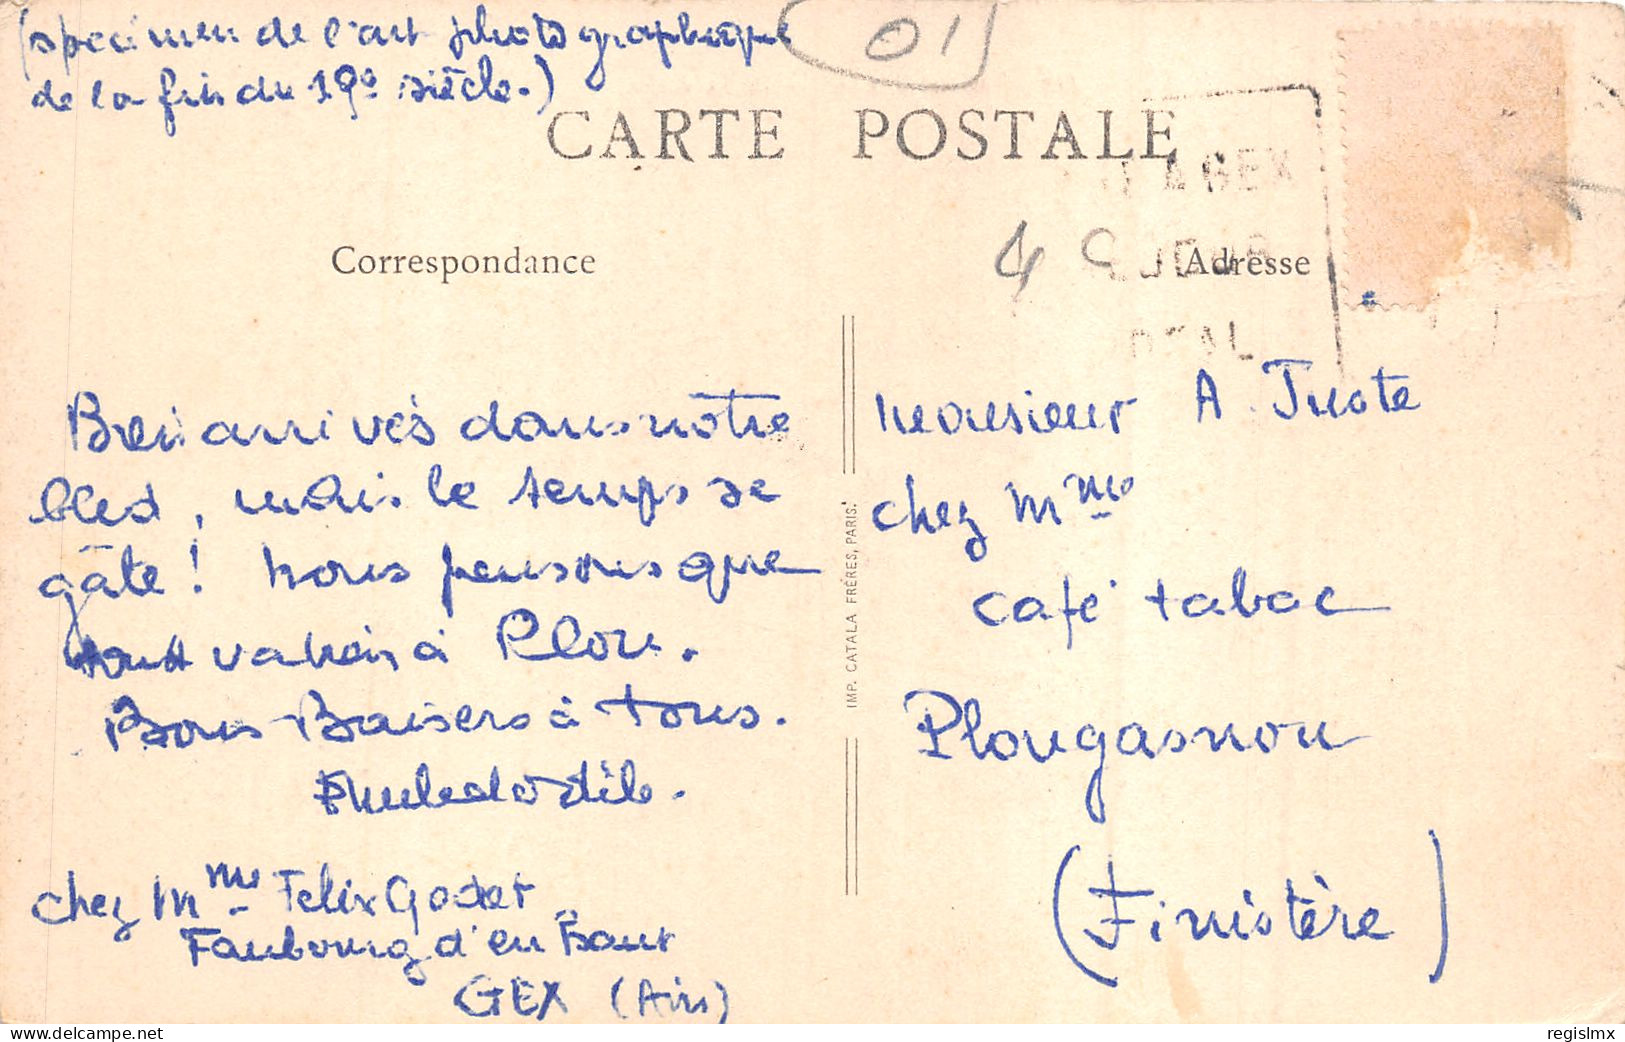 (specimen de l'art photographique
de la fin du 19e siècle.)
01
CARTE POSTALE
A GEX
4
Correspondance
Adresse
Bien arrivés dans nôtre
bled, mais le temps se
gâte! Nous pensons que
à Plou.
Bons Baisers à tous.
chez Mme Felix Godet
Faubourg d'en Haut
GEX (Ain)
IMP. CATALA FRÈRES, PARIS.
Monsieur A.
chez Mme
café tabac
Plougasnou
(Finistère)
regislmx